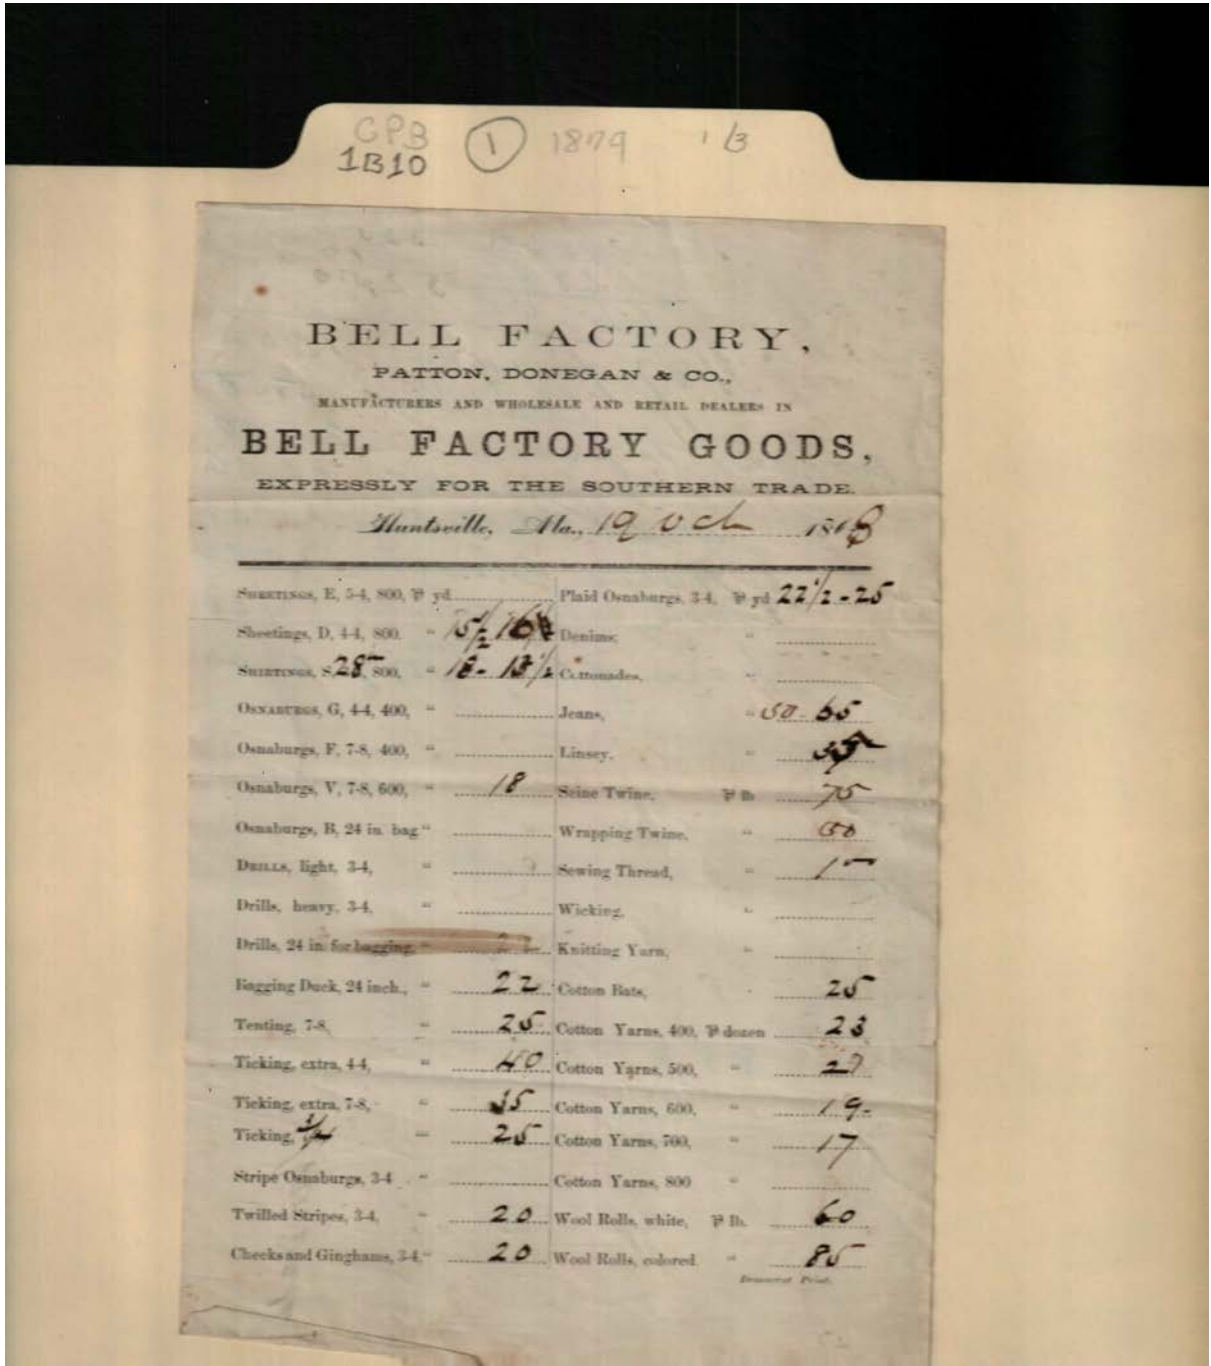 CPB 1 1879 1/3
1B10
BELL FACTORY,
PATTON, DONEGAN & CO.,
MANUFACTURERS AND WHOLESALE AND RETAIL DEALERS IN
BELL FACTORY GOODS,
EXPRESSLY FOR THE SOUTHERN TRADE.
Huntsville, Ala., 19 Oct 1868
SHEETINGS, E, 5-4, 800, ⅌ yd.
Sheetings, D, 4-4, 800. " 15½ 16
SHIRTINGS, S, 28, 800, "
OSNABURGS, G, 4-4, 400, "
Osnaburgs, F, 7-8, 400, "
Osnaburgs, V, 7-8, 600, " 18
Osnaburgs, B, 24 in. bag "
DRILLS, light, 3-4, "
Drills, heavy, 3-4, "
Drills, 24 in. for bagging, "
Bagging Duck, 24 inch., " 22
Tenting, 7-8, " 25
Ticking, extra, 4-4, " 40
Ticking, extra, 7-8, " 35
Ticking, 3/4 " 25
Stripe Osnaburgs, 3-4 "
Twilled Stripes, 3-4, " 20
Checks and Ginghams, 3-4 " 20
Plaid Osnaburgs, 3-4, ⅌ yd 22½ - 25
Denims, "
Cottonades, "
Jeans, " 50 - 65
Linsey, "
Seine Twine, ⅌ lb 75
Wrapping Twine, " 50
Sewing Thread, "
Wicking, "
Knitting Yarn, "
Cotton Bats, " 25
Cotton Yarns, 400, ⅌ dozen 23
Cotton Yarns, 500, "
Cotton Yarns, 600, " 19-
Cotton Yarns, 700, " 17
Cotton Yarns, 800 "
Wool Rolls, white, ⅌ lb. 60
Wool Rolls, colored " 85
Democrat Print.